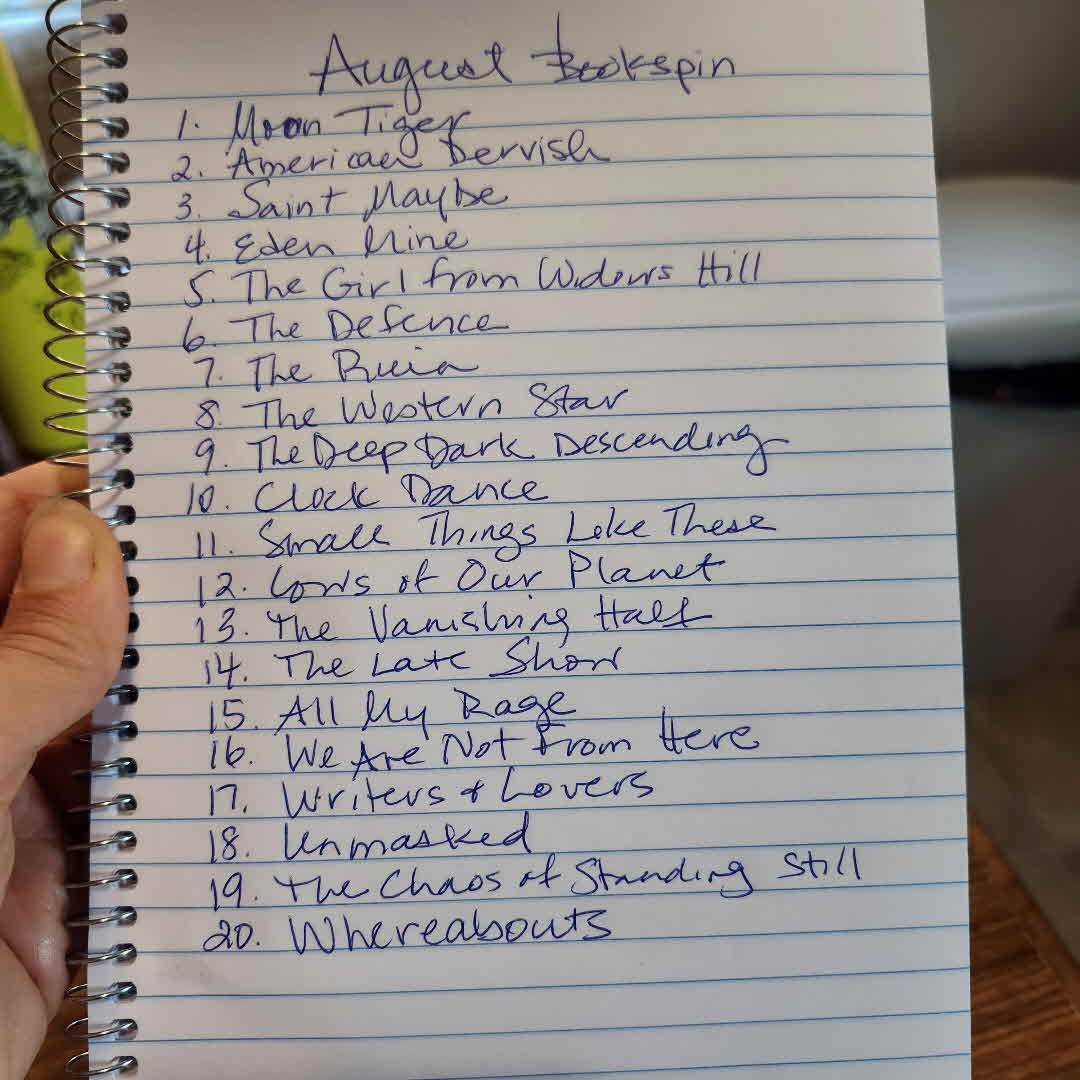 August Bookspin
1. Moon Tiger
2. American Dervish
3. Saint Maybe
4. Eden Mine
5. The Girl from Widows Hill
6. The Defence
7. The Ruin
8. The Western Star
9. The Deep Dark Descending
10. Clock Dance
11. Small Things Like These
12. Cows of Our Planet
13. The Vanishing Half
14. The Late Show
15. All My Rage
16. We Are Not From Here
17. Writers & Lovers
18. Unmasked
19. The Chaos of Standing Still
20. Whereabouts